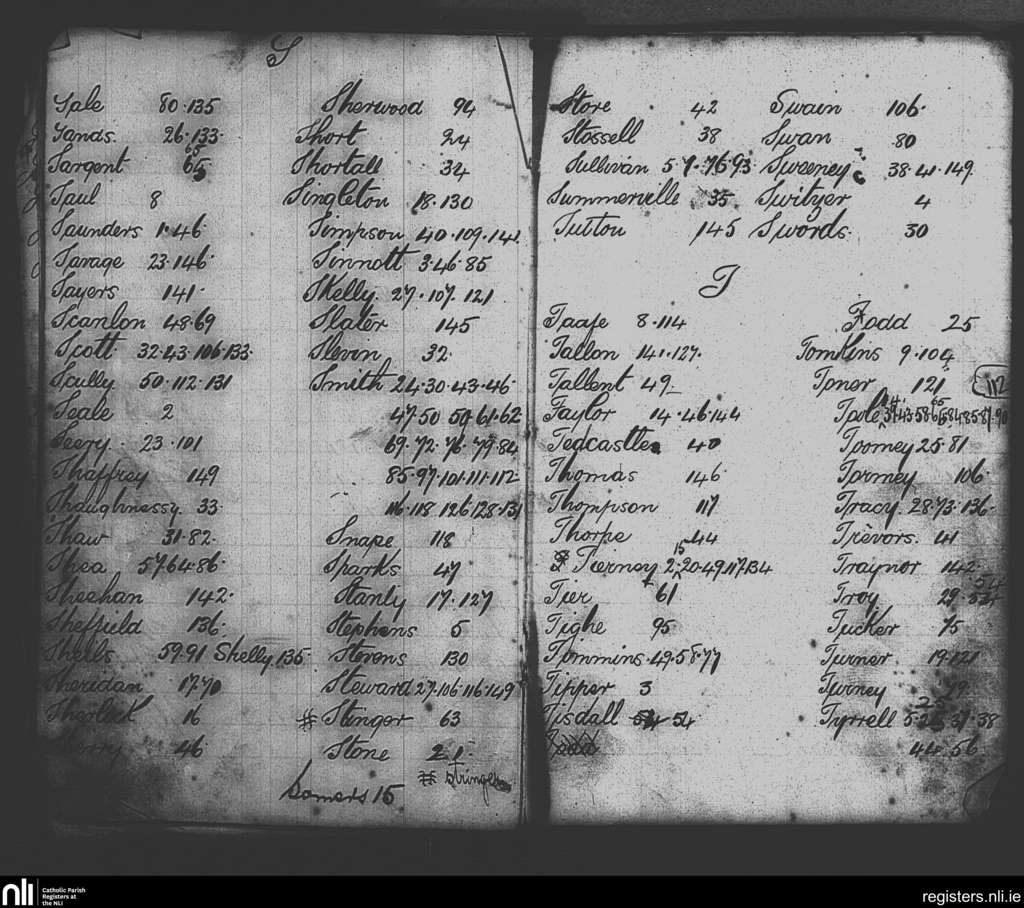 S
Sale 80·135
Sands. 26·133·
Sargent 65
Saul 8
Saunders 1·46·
Savage 23·146·
Sayers 141·
Scanlon 48·69
Scott 32·43·106·133·
Scully 50·112·131
Seale 2
Seery· 23·101
Shaffrey 149
Shaughnessy 33·
Shaw 31·82·
Shea 57·64·86·
Sheehan 142·
Sheffield 136·
Sheils 59·91 Skelly 135
Sheridan 17·70
Sherlock 16
Sherry 46
Sherwood 94
Short 24
Shortall 34
Singleton 18·130
Simpson 40·109·141
Sinnott 3·46·85
Skelly 27·107·121
Slater 145
Slevin 32·
Smith 24·30·43·46·
47·50·59·61·62·
69·72·76·79·84
85·97·101·111·112
116·118·126·128·131
Snape 118
Sparks 47
Stanly 17·127
Stephens 5
Stevens 130
Steward 27·106·116·149
# Stenger 63
Stone 21
# Stringer
Somers 15
Store 42
Stossell 38
Sullivan 5·7·76·93
Summerville 35
Sutton 145
Swain 106·
Swan 80
Sweeney 38·41·149
Switzer 4
Swords· 30
T
Taafe 8·114
Tallon 141·127·
Tallent 49
Taylor 14·46·144
Tedcastle 40
Thomas 146
Thompson 117
Thorpe 44
Tierney 2·15·20·49·117·134
Tier 61
Tighe 95
Timmins·49·58·77
Tipper 3
Tisdall 54
Todd 25
Tomkins 9·104
Toner 121 112
Toole
Toomey 25·81
Tormey 106·
Tracy· 28·73·136·
Trevors· 41
Traynor 142·
Troy 29· 54
Tucker 75
Turner 19·121
Turney 19
Tyrrell 5 25 37·38
44·56
nli Catholic Parish
Registers at
the NLI
registers.nli.ie